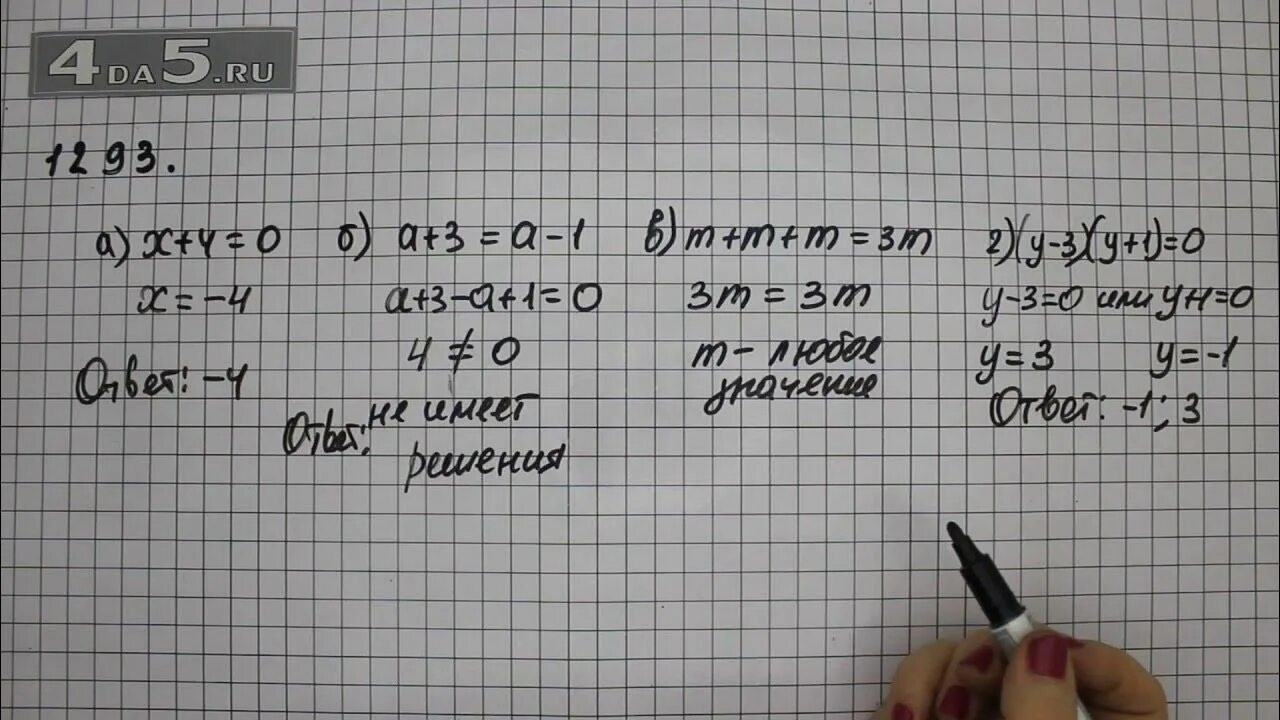 4DA5.RU
1293.
а) x+4=0
x=-4
Ответ: -4
б) a+3=a-1
a+3-a+1=0
4≠0
Ответ: не имеет
решения
в) m+m+m=3m
3m=3m
m- любое
значение
г) (y-3)(y+1)=0
y-3=0 или y+1=0
y=3 y=-1
Ответ: -1; 3